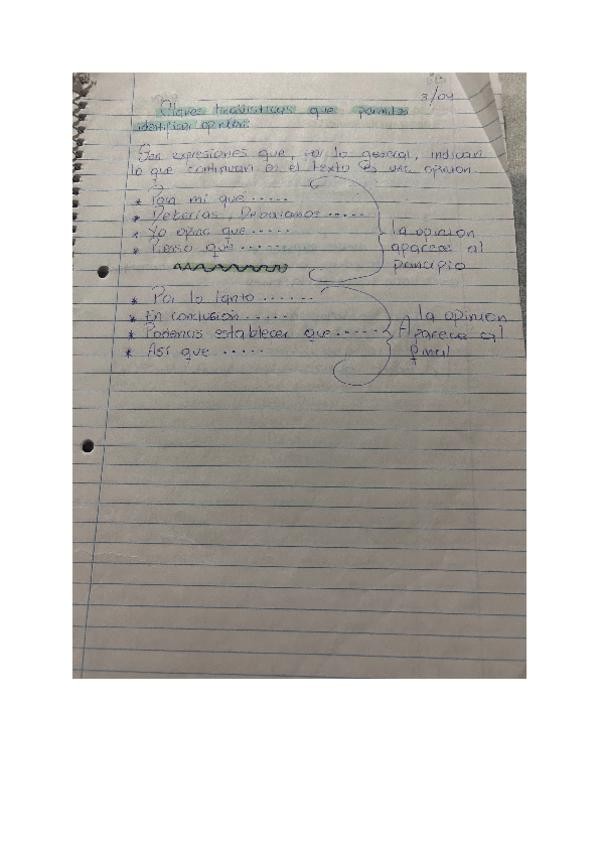 3/04
Claves lingüísticas que permiten
identificar opinión:
Son expresiones que, por lo general, indican
lo que continuan en el texto es una opinion.
* Para mi que.....
* Deberías, Debaríamos.....
* Yo opino que.....
* Pienso que.....
la opinion
aparece al
principio
* Por lo tanto.......
* En conclusión.....
* Podemos establecer que.....
* Así que.....
la opinion
Aparece al
final